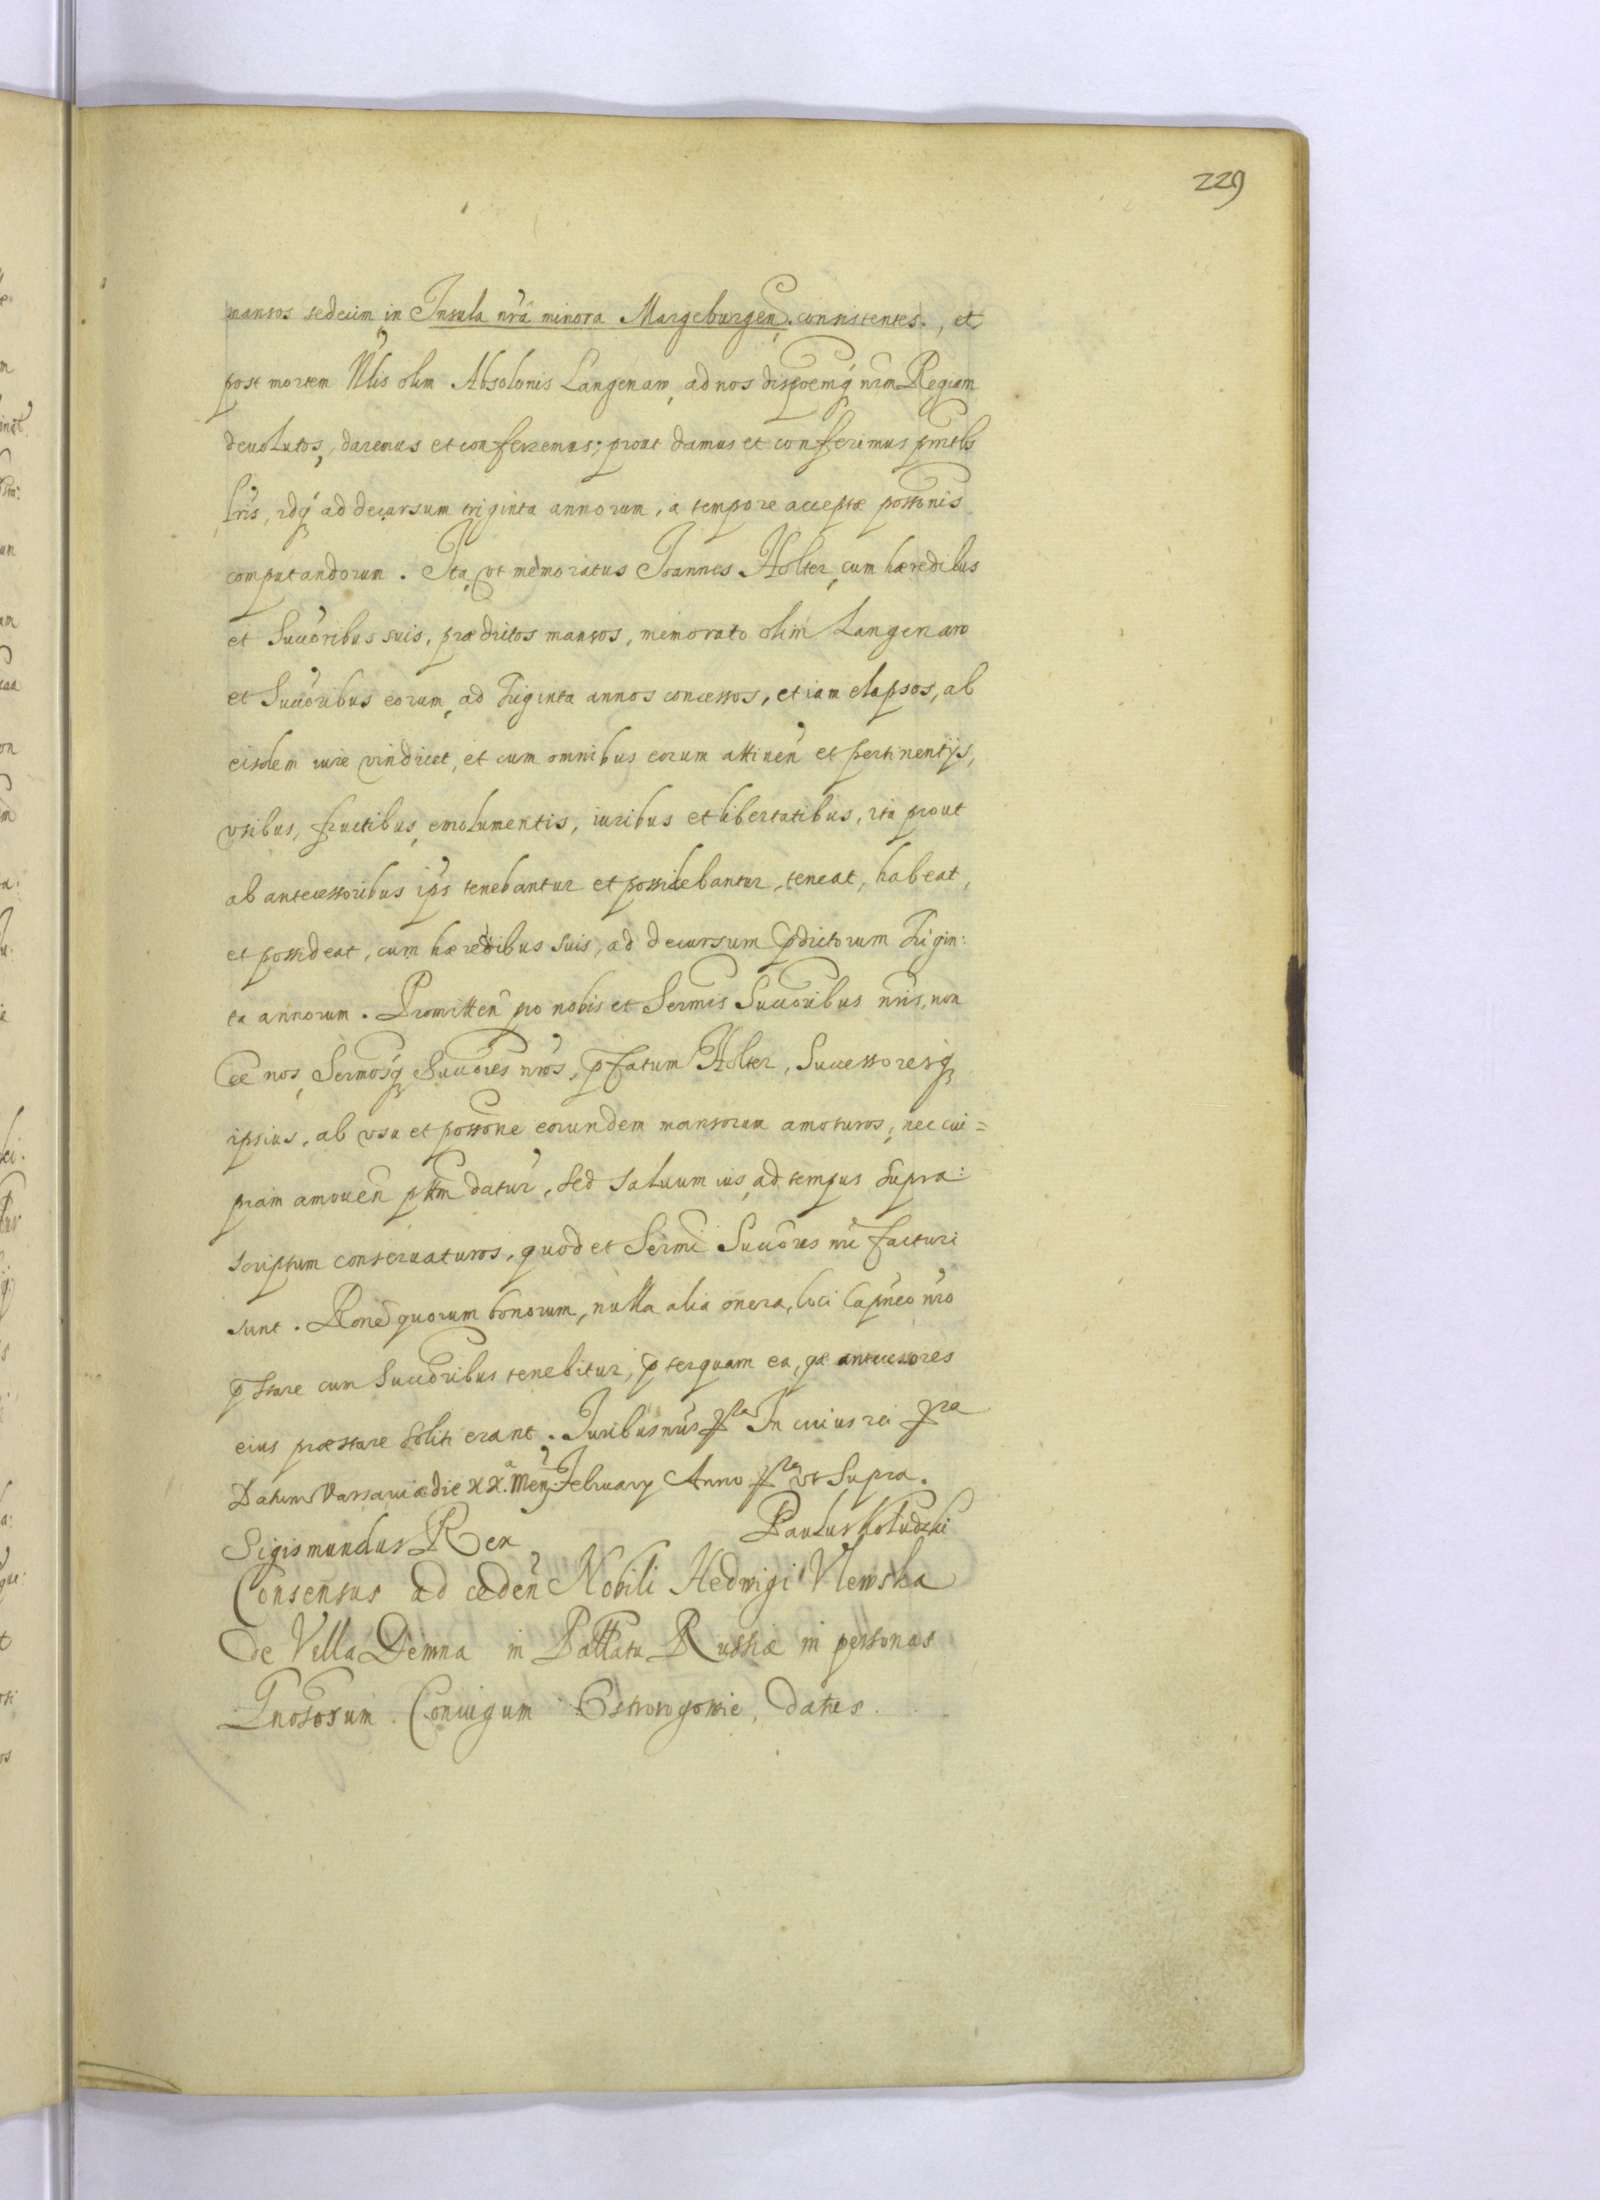 229
mansos sedecim in Insula nrã minora Margeburgeñ. consistentes, et
post mortem Nlis olim Absolonis Langenaw, ad nos dispoemq́ nrãm Regiam
deuolutos, daremus et conferemus; prout damus et conferimus pñtbs
Lrĩs, idq́ ad decursum triginta annorum, a tempore acceptæ possõnis
computandorum. Ita, vt memoratus Joannes Holter, cum hæredibus
et Succõribus suis, prædictos mansos, memorato olim Langenaro
et Succõribus eorum, ad Triginta annos concessos, et iam elapsos, ab
eisdem iure vindicet, et cum omnibus eorum attineñ et pertinentijs,
vsibus, fructibus, emolumentis, iuribus et libertatibus, ita prout
ab antecessoribus ip̃s tenebantur et possidebantur, teneat, habeat,
et possideat, cum hæredibus suis, ad decursum p̱dictorum Trigin:
ta annorum. Promitteñ pro nobis et Serm̃is Succõribus nrĩs, non
ẽe nos, Serm̃osq́ Succõres nrõs, p̱fatum Holter, Successoresq́
ipsius, ab vsu et possõne eorundem mansorum amoturos, nec cui=
piam amoueñ pt̃tm daturõ, sed saluum ius, ad tempus supra:
scriptum conseruaturos, quod et Serm̃i Succõres nrĩ facturi
sunt. Rõne quorum bonorum, nulla alia onera, loci Cap̃neo nrõ
p̱stare cum Succõribus tenebitur, p̱terquam ea, quæ antecessores
eius præstare soliti erant. Juribus nrĩs pra In cuius rei pra
Datum Varsauiæ die XX.a Meñ February Anno pra vt supra.
Sigismundus Rex Paulus Koludzki
Consensus ad cedeñ Nobili Hedwigi Vlewska
De Villa Demna in Pallatu Russiæ in personas
Gnosorum Coniugum Ostrorogowie, datus.